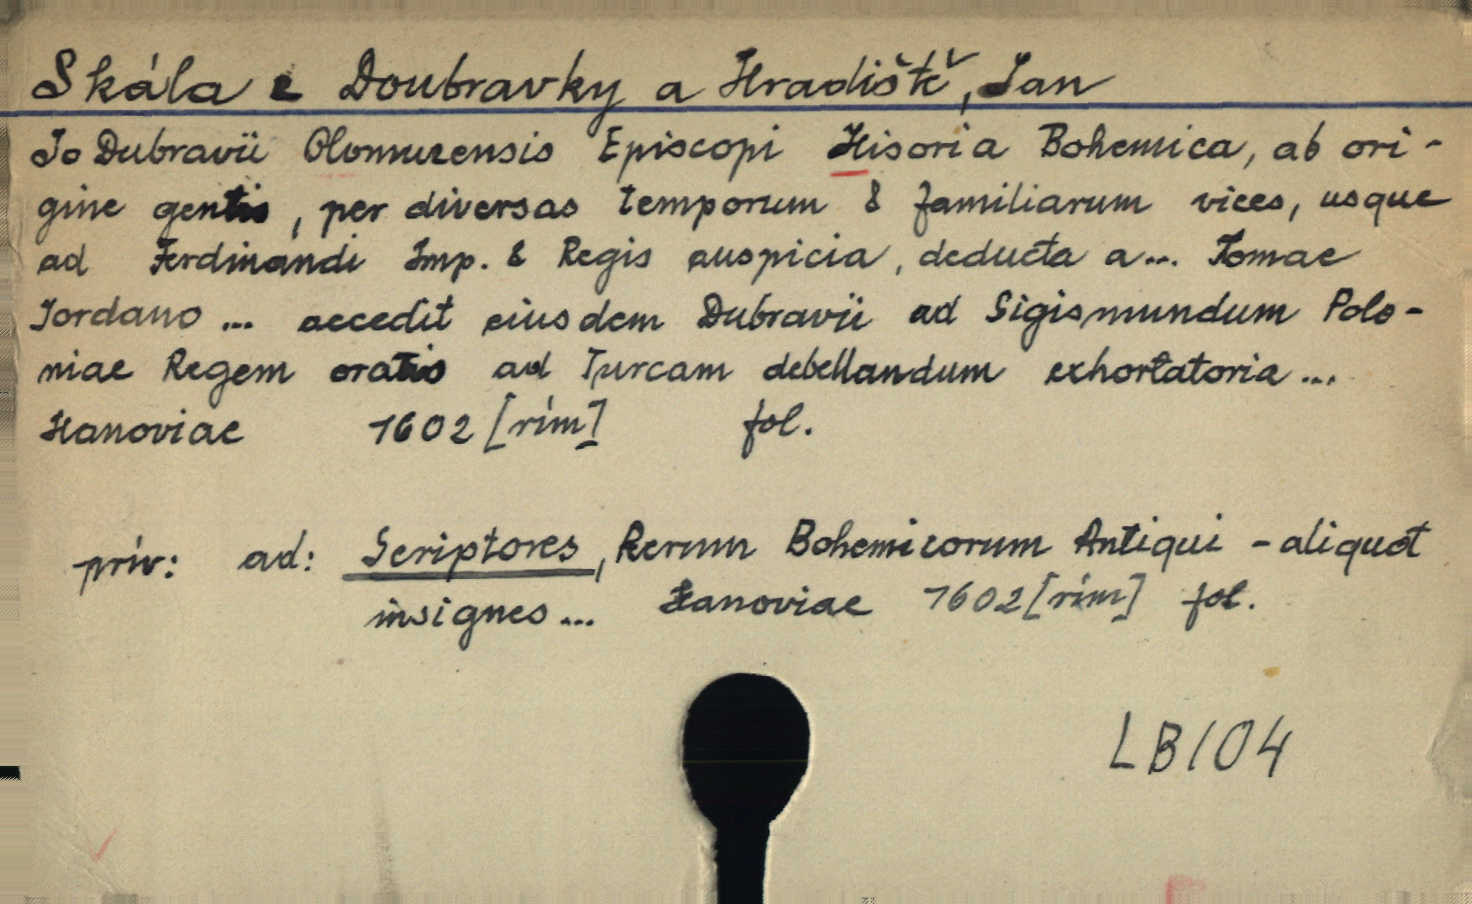 Skála z Doubravky a Hradiště, Jan
Jo Dubravii Olomuzensis Episcopi Hisoria Bohemica, ab ori-
gine gentis, per diversas temporum & familiarum vices, usque
ad Ferdinandi Imp. & Regis auspicia, deducta a... Tomae
Jordano ... accedit eiusdem Dubravii ad Sigismundum Polo-
niae Regem oratio ad Turcam debellandum exhortatoria ...
Hanoviae 1602 [rím] fol.
prív: ad: Scriptores, Rerum Bohemicorum Antiqui - aliquot
insignes ... Hanoviae 1602 [rím] fol.
LB104